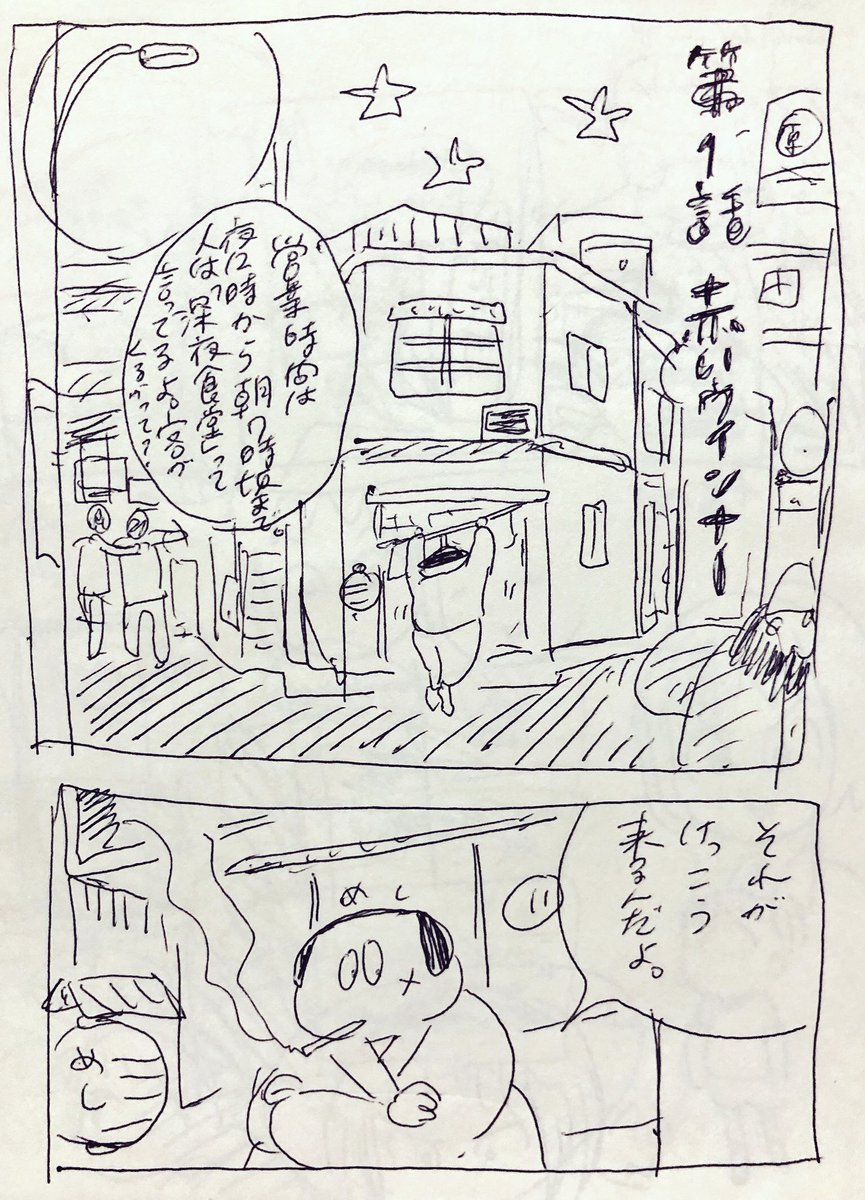 第1話 赤いウインナー
営業時間は
夜12時から朝7時頃まで。
人は「深夜食堂」って
言ってるよ。客が
くるかって?
それが
けっこう
来るんだよ。
めし
めし